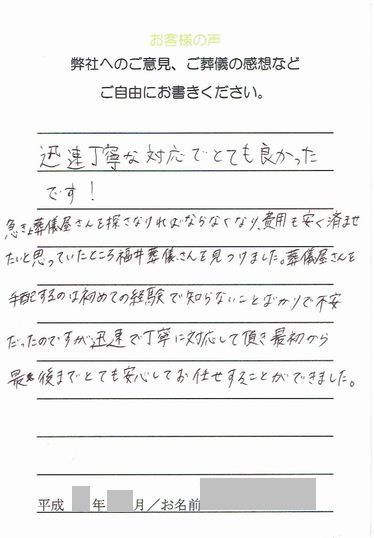 お客様の声
弊社へのご意見、ご葬儀の感想など
ご自由にお書きください。
迅速丁寧な対応でとても良かった
です！
急きょ葬儀屋さんを探さなければならなくなり、費用も安く済ませ
たいと思っていたところ福井葬儀さんを見つけました。葬儀屋さんを
手配するのは初めての経験で知らないことばかりで不安
だったのですが迅速で丁寧に対応して頂き最初から
最後までとても安心してお任せすることができました。
平成 年 月／お名前